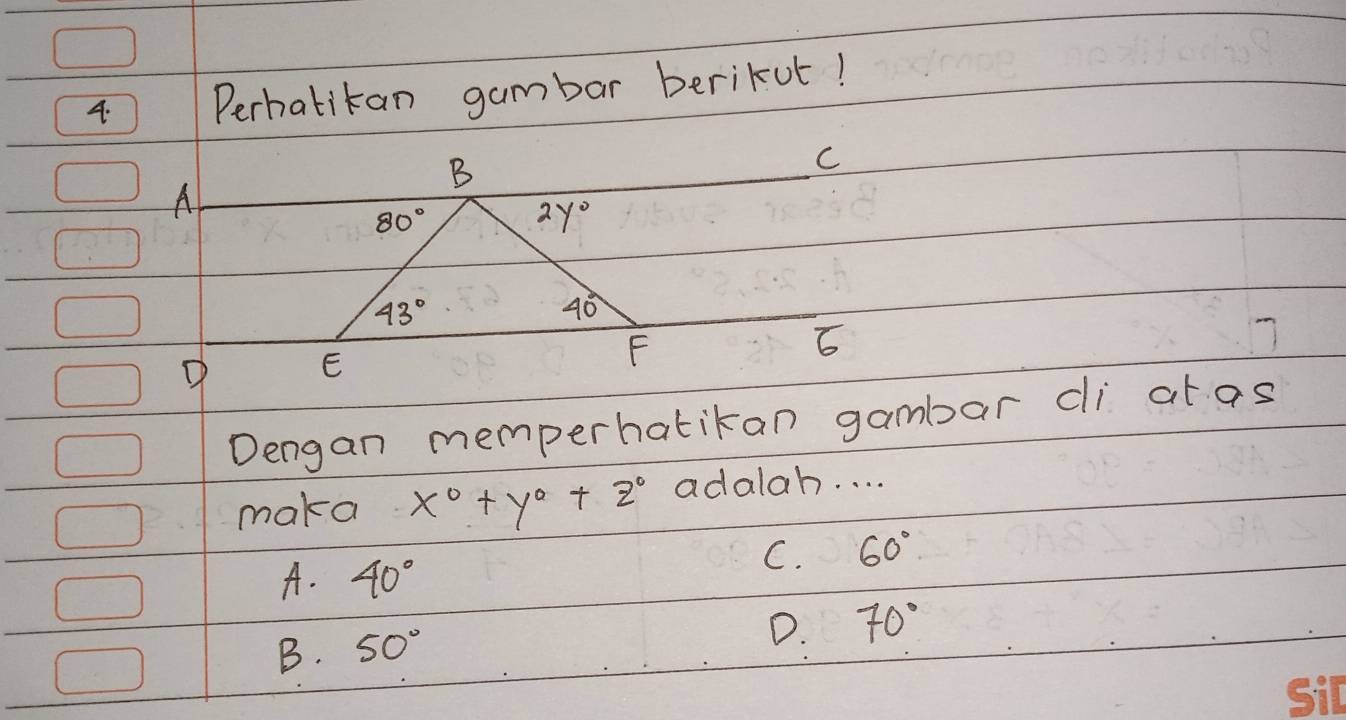 4. Perhatikan gambar berikut!
A B C
80° 2y°
43° 40°
D E F G
Dengan memperhatikan gambar di atas
maka x° + y° + z° adalah....
A. 40° C. 60°
B. 50° D. 70°
SiD